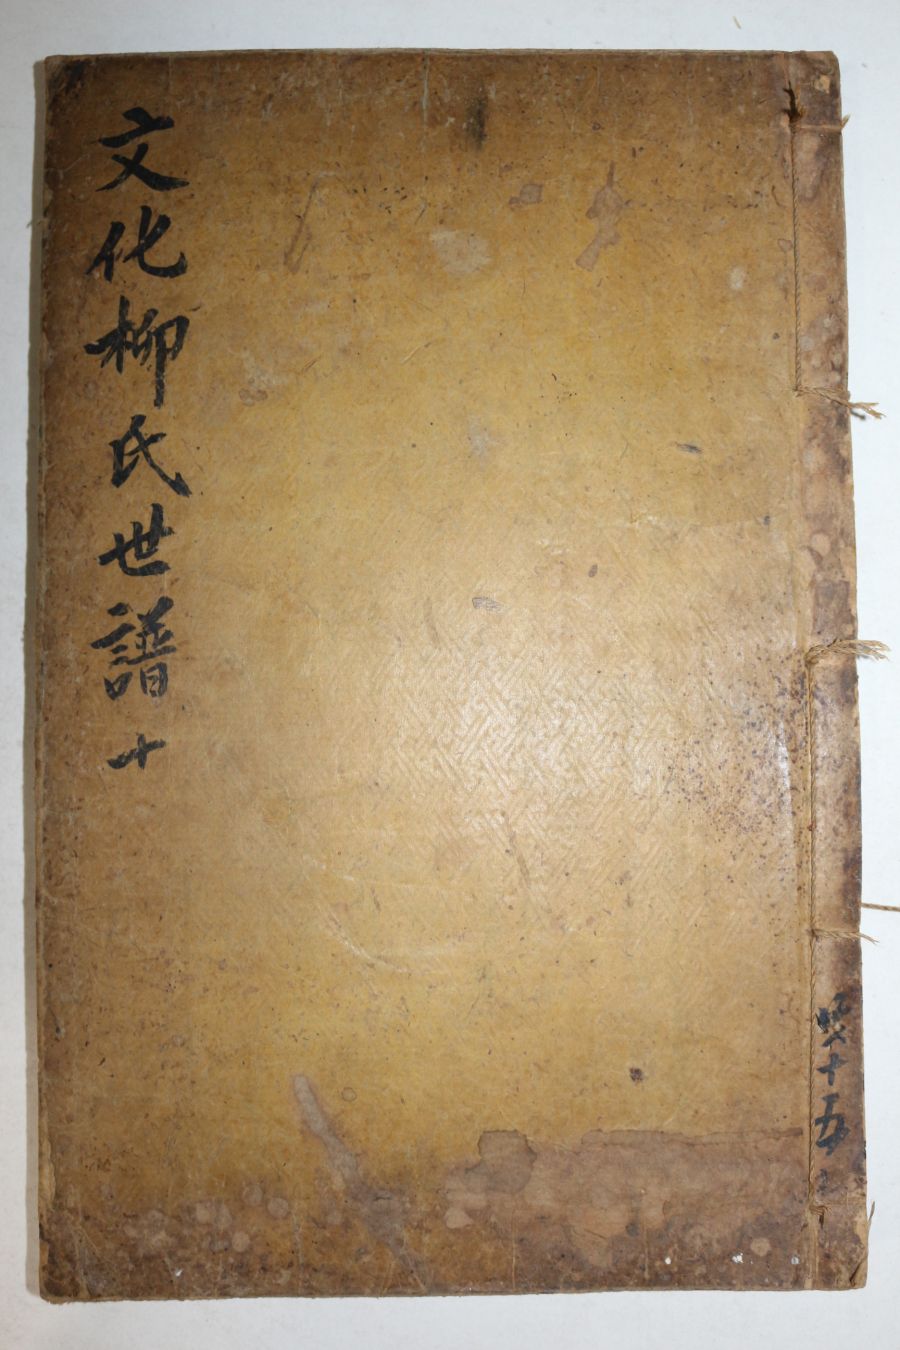 文化柳氏世譜 十
共十五